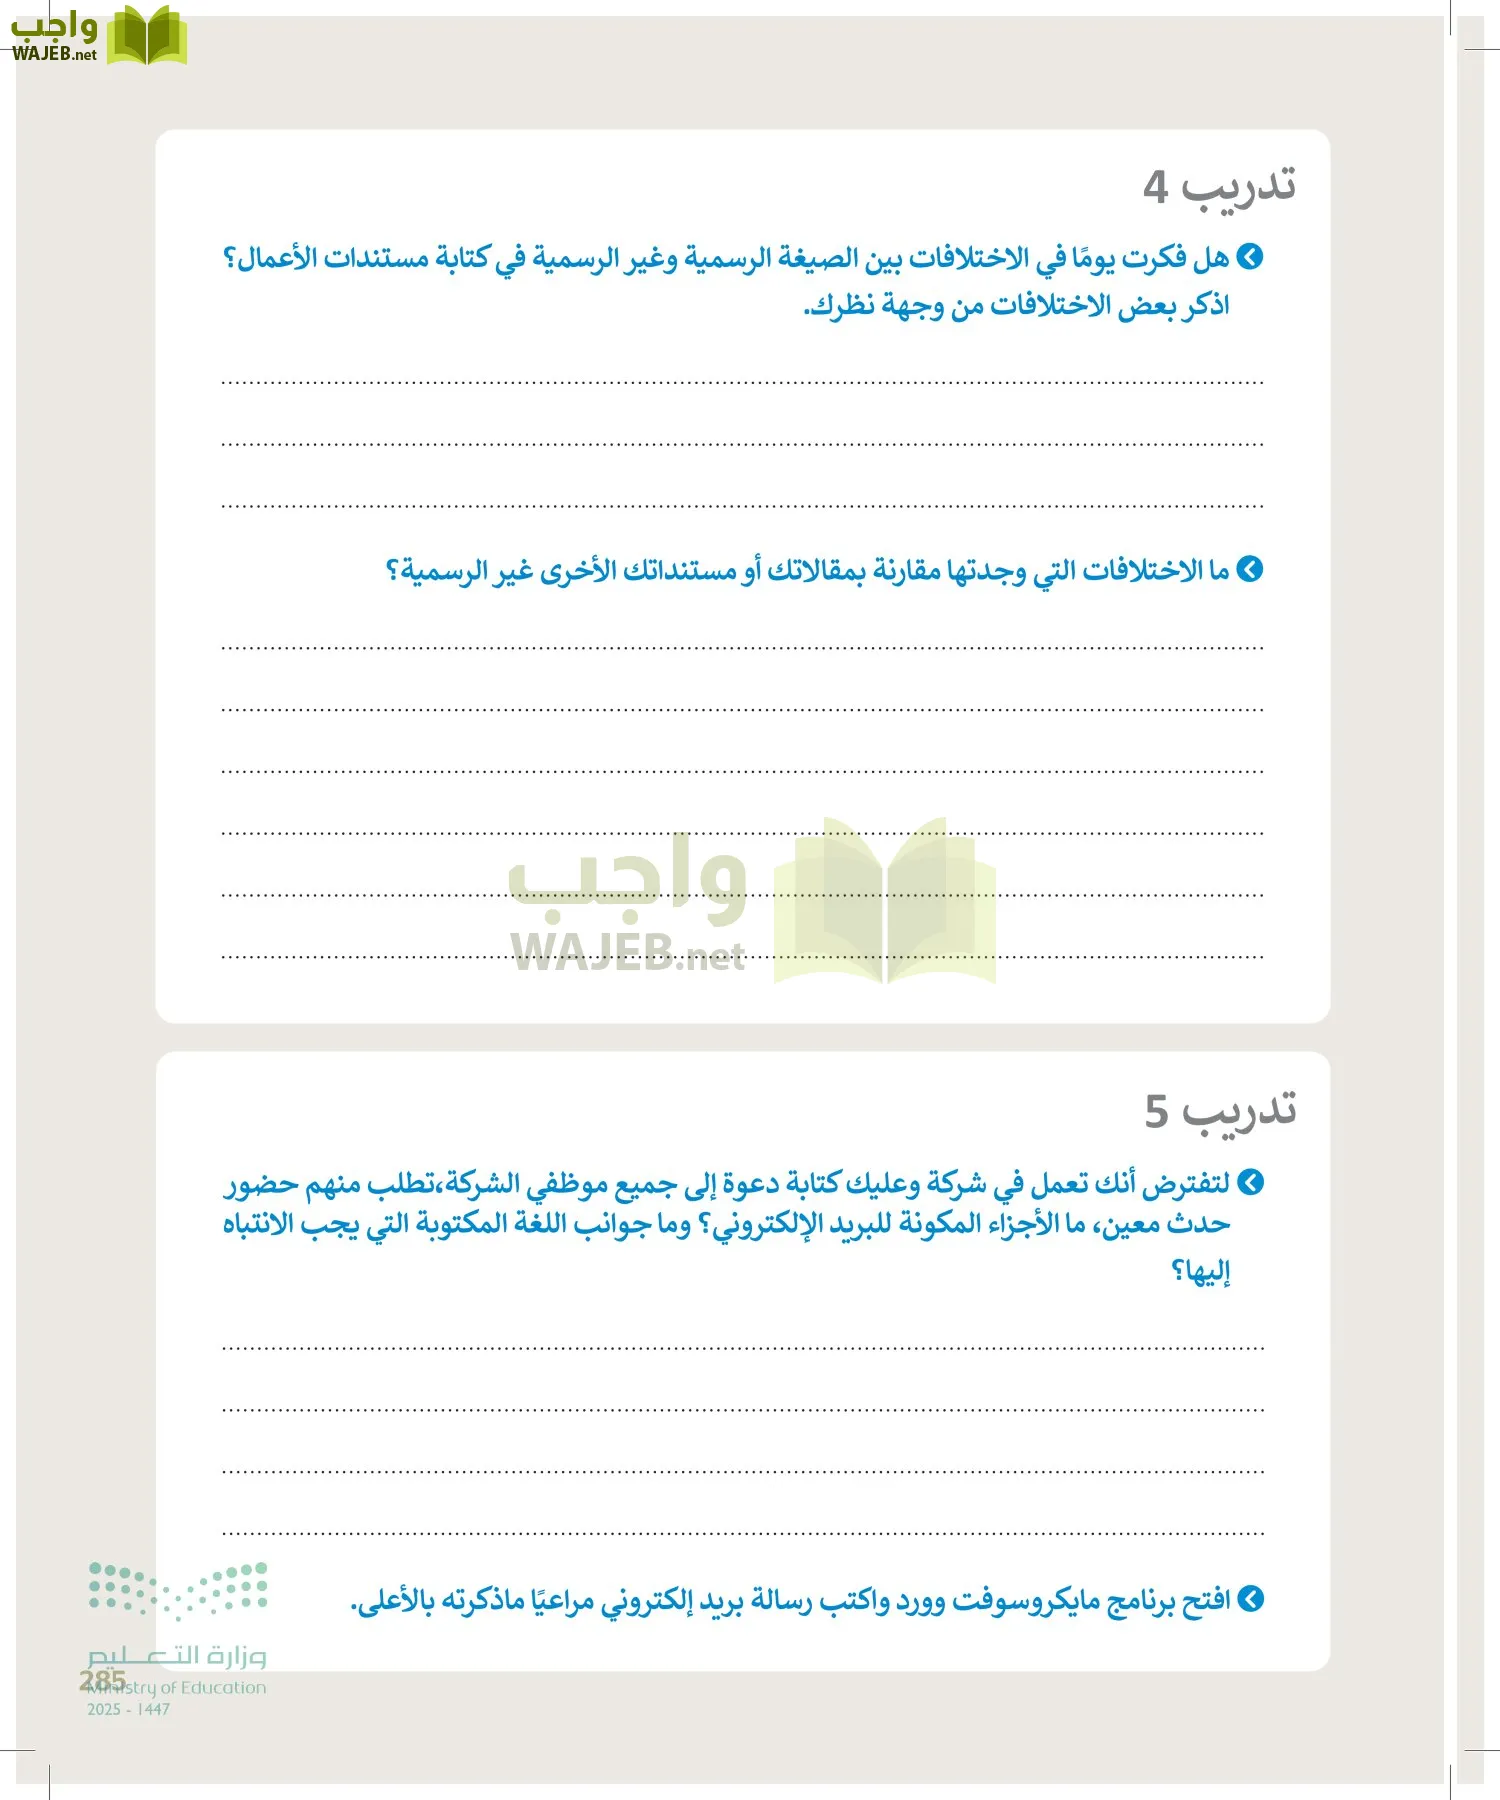 واجب
WAJEB.net
تدريب 4
هل فكرت يومًا في الاختلافات بين الصيغة الرسمية وغير الرسمية في كتابة مستندات الأعمال؟
اذكر بعض الاختلافات من وجهة نظرك.
ما الاختلافات التي وجدتها مقارنة بمقالاتك أو مستنداتك الأخرى غير الرسمية؟
واجب
WAJEB.net
تدريب 5
لتفترض أنك تعمل في شركة وعليك كتابة دعوة إلى جميع موظفي الشركة،تطلب منهم حضور
حدث معين، ما الأجزاء المكونة للبريد الإلكتروني؟ وما جوانب اللغة المكتوبة التي يجب الانتباه
إليها؟
افتح برنامج مايكروسوفت وورد واكتب رسالة بريد إلكتروني مراعيًا ماذكرته بالأعلى.
وزارة التعليم
285
Ministry of Education
2025 - 1447